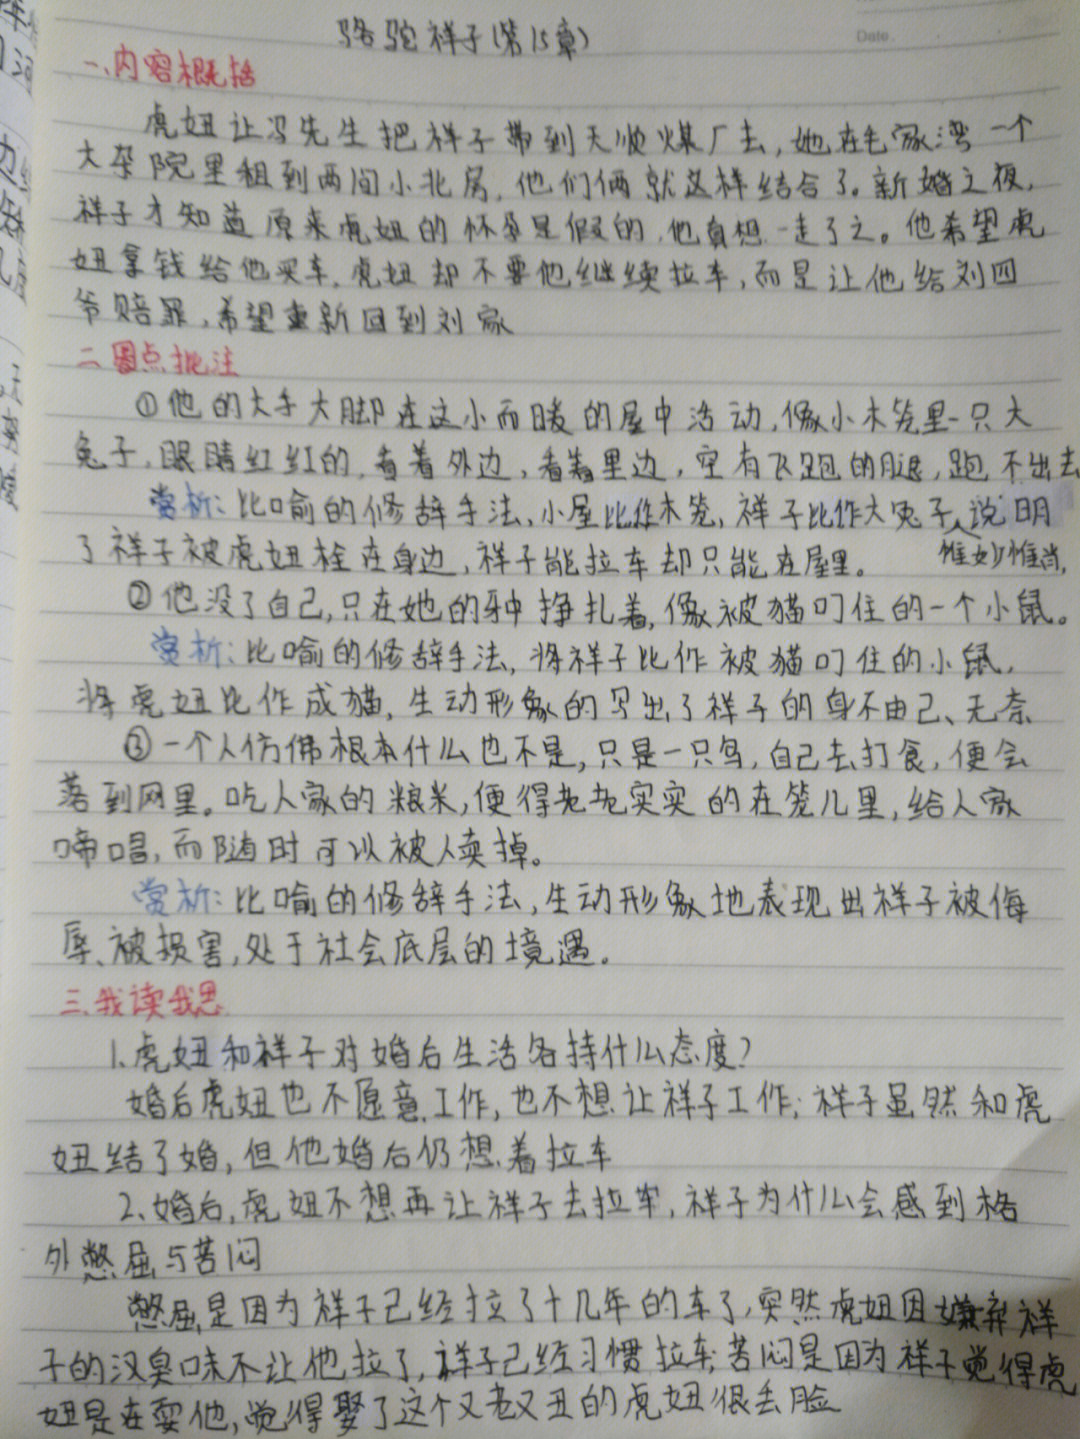 骆驼祥子(第15章)
Date.
一、内容概括
虎妞让冯先生把祥子带到天顺煤厂去,她在毛家湾一个
大杂院里租到两间小北房,他们俩就这样结合了。新婚之夜,
祥子才知道原来虎妞的怀孕是假的,他真想一走了之。他希望虎
妞拿钱给他买车,虎妞却不要他继续拉车,而是让他给刘四
爷赔罪,希望重新回到刘家
二圈点批注
①他的大手大脚在这小而暖的屋中活动,像小木笼里一只大
兔子,眼睛红红的,看着外边,看着里边,空有飞跑的腿,跑不出去
赏析:比喻的修辞手法,小屋比作木笼,祥子比作大兔子,说明
惟妙惟肖,
了祥子被虎妞栓在身边,祥子能拉车却只能在屋里。
②他没了自己,只在她的牙中挣扎着,像被猫叼住的一个小鼠。
赏析:比喻的修辞手法,将祥子比作被猫叼住的小鼠,
将虎妞比作成猫,生动形象的写出了祥子的身不由己、无奈
③一个人仿佛根本什么也不是,只是一只鸟,自己去打食,便会
落到网里。吃人家的粮米,便得老老实实的在笼儿里,给人家
啼唱,而随时可以被人卖掉。
赏析:比喻的修辞手法,生动形象地表现出祥子被侮
辱、被损害,处于社会底层的境遇。
三、我读我思
1.虎妞和祥子对婚后生活各持什么态度?
婚后虎妞也不愿意工作,也不想让祥子工作;祥子虽然和虎
妞结了婚,但他婚后仍想着拉车
2、婚后,虎妞不想再让祥子去拉车,祥子为什么会感到格
外憋屈与苦闷
憋屈是因为祥子已经拉了十几年的车了,突然虎妞因嫌弃祥
子的汉臭味不让他拉了,祥子已经习惯拉车;苦闷是因为祥子觉得虎
妞是在耍他,觉得娶了这个又老又丑的虎妞很丢脸